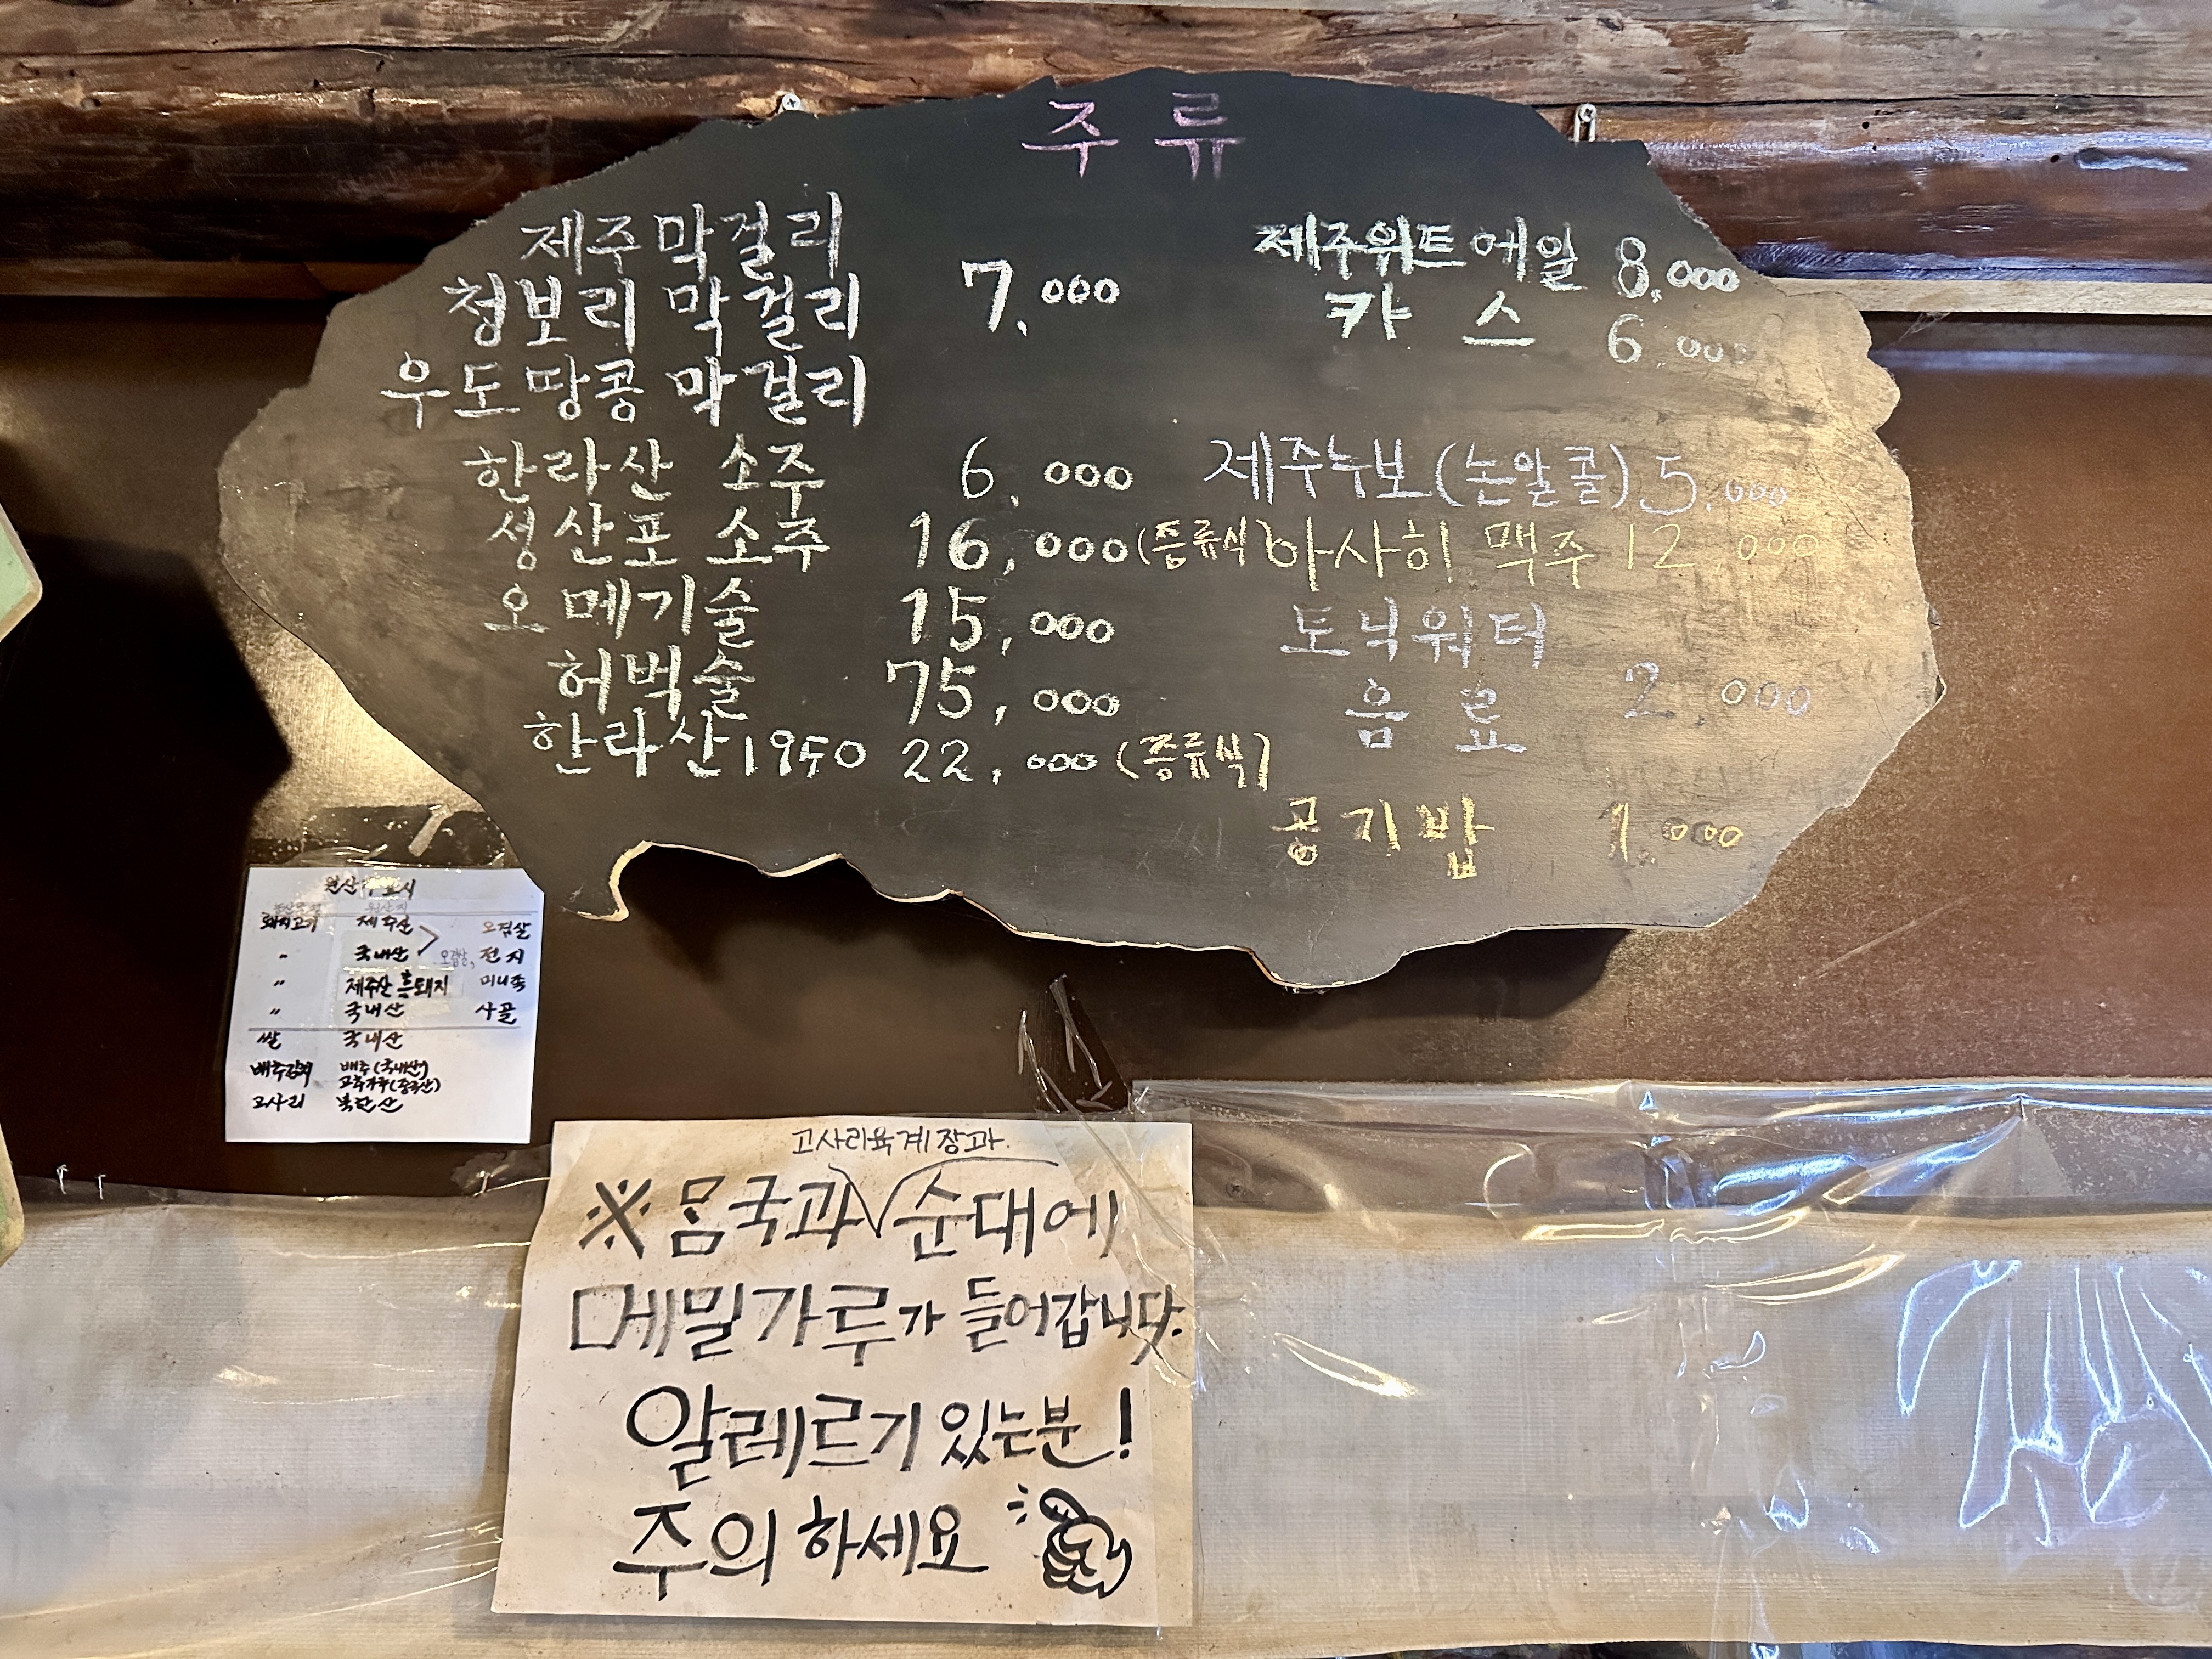 주류
제주막걸리
청보리 막걸리 7.000
우도땅콩 막걸리
한라산 소주 6.000
성산포 소주 16,000(증류식)
오메기술 15,000
허벅술 75,000
한라산1950 22,000 (증류식)
제주위트에일 8.000
카스 6.000
제주누보(논알콜) 5.000
아사히 맥주 12,000
토닉워터
음료 2.000
공기밥 1.000
원산지표시
돼지고기 제주산 오겹살
" 국내산 오겹살, 전지
" 제주산 흑돼지 미니족
" 국내산 사골
쌀 국내산
배추김치 배추(국내산)
고추가루(중국산)
고사리 북한산
고사리육계장과
※몸국과 순대에
메밀가루가 들어갑니다.
알레르기 있는분!
주의하세요